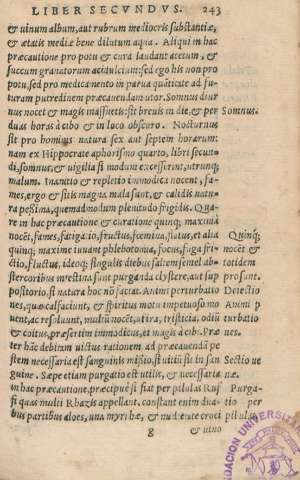 LIBER SECVNDVS. 243
& uinum album, aut rubrum mediocris substantiæ,
& ætatis mediæ bene dilutum aqua. Aliqui in hac
præcautione pro potu & cura laudant acetum, &
succum granatorum acidulcium: sed ego his non pro
potu, sed pro medicamento in parua quātitate ad fu-
turam putredinem præcauendam utor. Somnus diur
nus nocet & magis māssetis: sit breuis in die, & per
Somnus.
duas horas à cibo & in loco obscuro. Nocturnus
sit pro hominis natura sex aut septem horarum:
nam ex Hippocrate aphorismo quarto, libri secun-
di, somnus, & uigilia si modum excesserint, utrunq;
malum. Inanitio & repletio immodicæ nocent, fa-
mes, ergo & sitis magna mala sunt, & calidis natu-
ra peßima, quemadmodum plenitudo frigidis. Qua
re in hac præcautione & curatione quinq; maximā
nocēt, fames, fatigatio, fructus, fœmina, flatus, et alia
Quinq;
quinq; maximè iuuant phlebotomia, focus, fuga fri-
nocēt &
ctio, fluctus, ideoq; singulis diebus saltem semel ab-
totidem
stercoribus intestina sunt purganda clystere, aut sup
prosunt.
positorio, si natura hoc nō faciat. Animi perturbatio
Deiectio
nes, quæ calfaciunt, & spiritus motu impetuoso mo
Animi p
uent, ac resoluunt, multū nocēt, ut ira, tristicia, odiū
turbatio
& coitus, præsertim immodicus, et magis à cibo. Præ
nes.
ter hāc debitam uictus rationem, ad præcauendā pe
stem necessaria est sanguinis mißio, si uitiū sit in san
Sectio ue
guine. Sæpe etiam purgatio est utilis, & necessaria
næ.
in hac præcautione, præcipuè si fiat per pilulas Ruf
Purga-
fi quas multi Rhazis appellant. constant enim dua-
tio per
bus partibus aloes, una myrrhæ, & nudieute croci
pilulas
g & uino